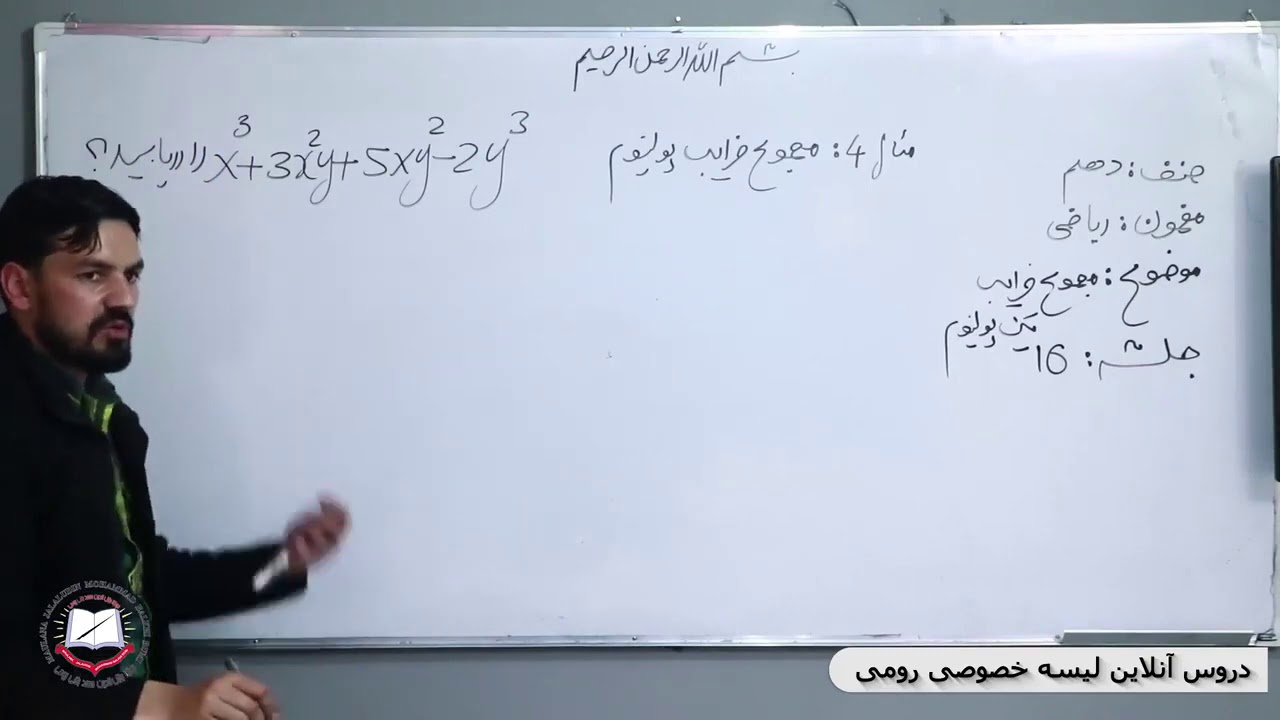 بسم الله الرحمن الرحیم
مثال 4: مجموع ضرایب پولینوم x³+3x²y+5xy²-2y³ را دریابید؟
صنف: دهم
مضمون: ریاضی
موضوع: مجموع ضرایب
یک پولینوم
جلسه: 16
دروس آنلاین لیسه خصوصی رومی